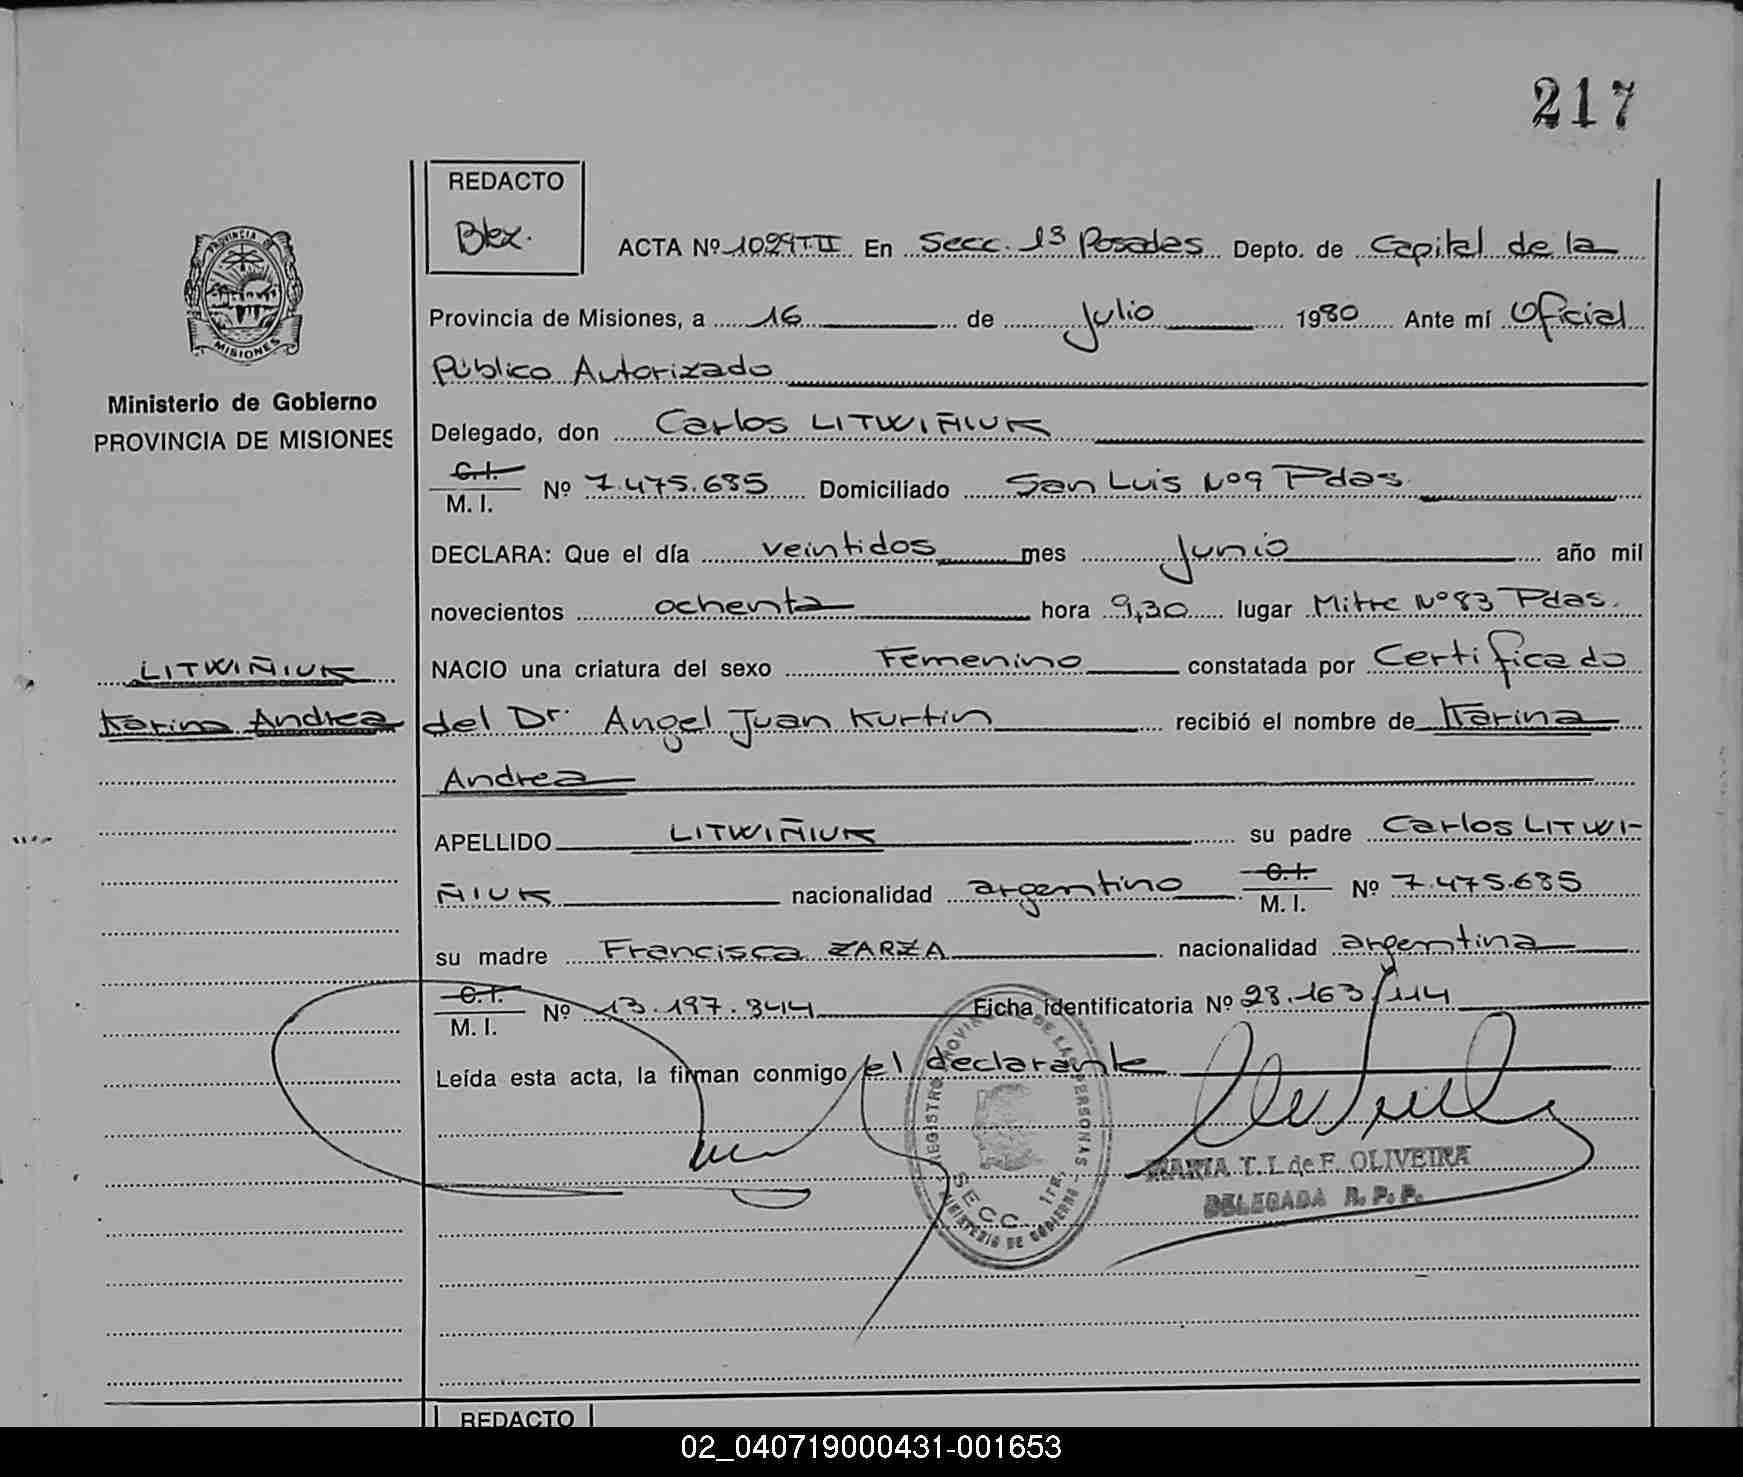 217
REDACTO
Blex.
ACTA Nº 1029 TII En Secc. 1ª Posadas Depto. de Capital de la
Provincia de Misiones, a 16 de Julio 1980 Ante mí Oficial
Público Autorizado
Delegado, don Carlos LITWIÑIUK
C.I.
M. I. Nº 7.475.685 Domiciliado San Luis Nº9 Pdas.
DECLARA: Que el día veintidos mes Junio año mil
novecientos ochenta hora 9,30 lugar Mitre Nº83 Pdas.
NACIO una criatura del sexo Femenino constatada por Certificado
del Dr. Angel Juan Kurtin recibió el nombre de Karina
Andrea
APELLIDO LITWIÑIUK su padre Carlos LITWI-
ÑIUK nacionalidad argentino C.I. M. I. Nº 7.475.685
su madre Francisca ZARZA nacionalidad argentina
C.I.
M. I. Nº 13.197.344 Ficha identificatoria Nº 28.163/114
Leída esta acta, la firman conmigo el declarante
PROVINCIA DE
MISIONES
Ministerio de Gobierno
PROVINCIA DE MISIONES
LITWIÑIUK
Karina Andrea
REGISTRO PROVIN DE LAS PERSONAS
SECC. 1ra.
MINISTERIO DE GOBIERNO
MARIA T. I. de F. OLIVEIRA
DELEGADA R. P. P.
REDACTO
02_040719000431-001653